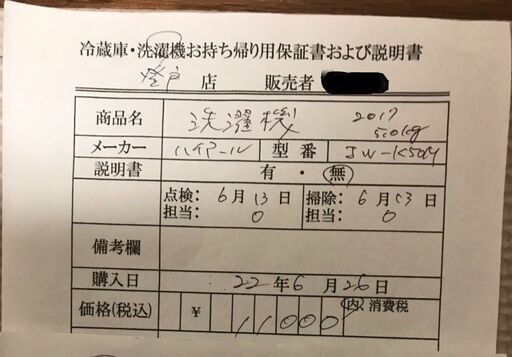 冷蔵庫・洗濯機お持ち帰り用保証書および説明書
登戸 店 販売者
商品名 洗濯機 2017 5.0kg
メーカー ハイアール 型番 JW-K50M
説明書 有・無
点検: 6月13日 掃除: 6月13日
担当: 0 担当: 0
備考欄
購入日 22年6月26日
価格(税込) ¥ 11000 内 消費税